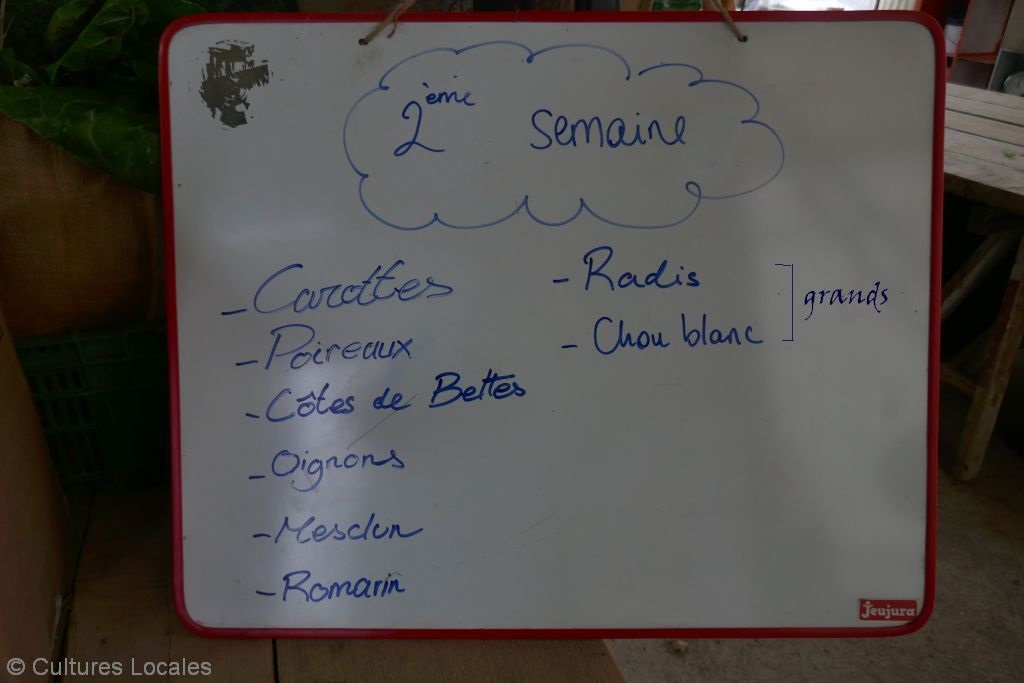 2ème semaine
- Carottes
- Poireaux
- Côtes de Bettes
- Oignons
- Mesclun
- Romarin
- Radis
- Chou blanc
] grands
Jeujura
© Cultures Locales